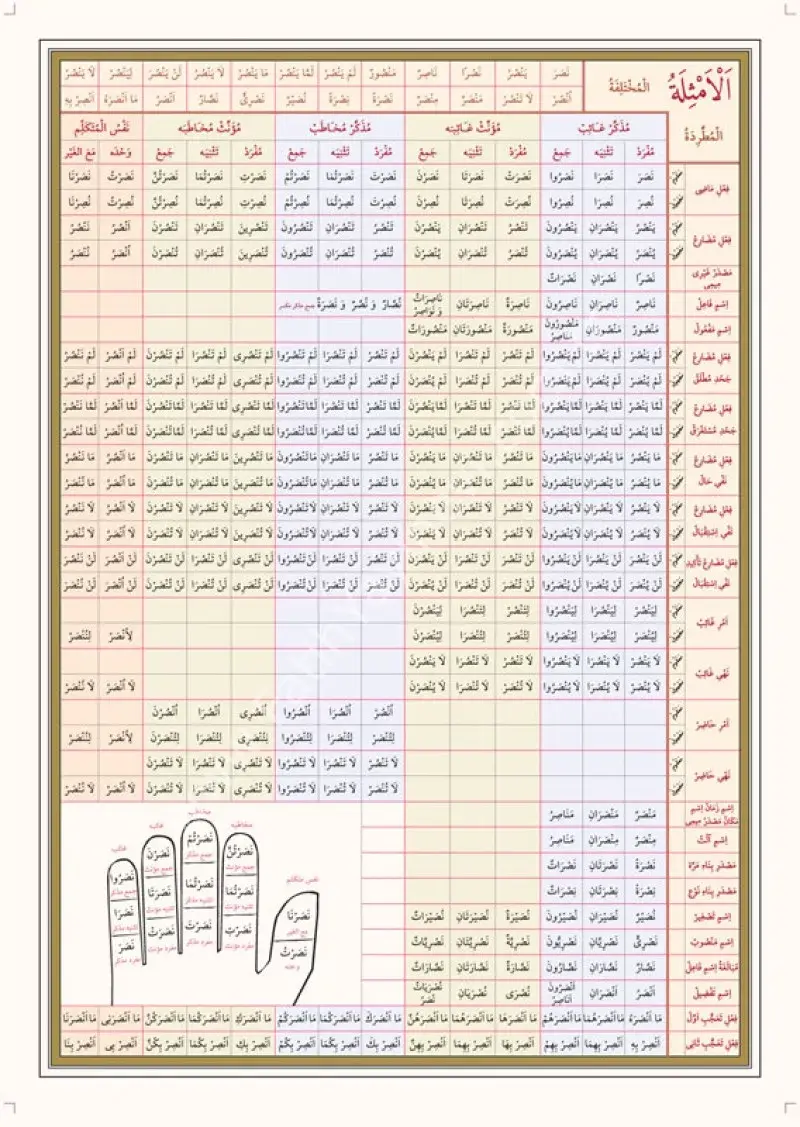 اَلْاَمْثِلَةُ الْمُخْتَلِفَةُ
نَصَرَ يَنْصُرُ نَصْرًا نَاصِرٌ مَنْصُورٌ لَمْ يَنْصُرْ لَمَّا يَنْصُرْ مَا يَنْصُرُ لَا يَنْصُرُ لَنْ يَنْصُرَ لِيَنْصُرْ لَا يَنْصُرْ
اُنْصُرْ لَا تَنْصُرْ مَنْصَرٌ مِنْصَرٌ نَصْرَةً نِصْرَةً نُصَيْرٌ نَصْرِىٌّ نَصَّارٌ اَنْصَرُ مَا اَنْصَرَهُ اَنْصِرْ بِهِ
الْمُطَّرِدَةُ
مُذَكَّرْ غَائِبْ مُؤَنَّثْ غَائِبَه مُذَكَّرْ مُخَاطَبْ مُؤَنَّثْ مُخَاطَبَه نَفْسُ الْمُتَكَلِّمِ
مُفْرَدْ تَثْنِيَه جَمِعْ مُفْرَدْ تَثْنِيَه جَمِعْ مُفْرَدْ تَثْنِيَه جَمِعْ مُفْرَدْ تَثْنِيَه جَمِعْ وَحْدَه مَعَ الْغَيْر
فِعْلِ مَاضِى
نَصَرَ نَصَرَا نَصَرُوا نَصَرَتْ نَصَرَتَا نَصَرْنَ نَصَرْتَ نَصَرْتُمَا نَصَرْتُمْ نَصَرْتِ نَصَرْتُمَا نَصَرْتُنَّ نَصَرْتُ نَصَرْنَا
نُصِرَ نُصِرَا نُصِرُوا نُصِرَتْ نُصِرَتَا نُصِرْنَ نُصِرْتَ نُصِرْتُمَا نُصِرْتُمْ نُصِرْتِ نُصِرْتُمَا نُصِرْتُنَّ نُصِرْتُ نُصِرْنَا
فِعْلِ مُضَارِعْ
يَنْصُرُ يَنْصُرَانِ يَنْصُرُونَ تَنْصُرُ تَنْصُرَانِ يَنْصُرْنَ تَنْصُرُ تَنْصُرَانِ تَنْصُرُونَ تَنْصُرِينَ تَنْصُرَانِ تَنْصُرْنَ اَنْصُرُ نَنْصُرُ
يُنْصَرُ يُنْصَرَانِ يُنْصَرُونَ تُنْصَرُ تُنْصَرَانِ يُنْصَرْنَ تُنْصَرُ تُنْصَرَانِ تُنْصَرُونَ تُنْصَرِينَ تُنْصَرَانِ تُنْصَرْنَ اُنْصَرُ نُنْصَرُ
مَصْدَرْ غَيْرِى مِيمِى
نَصْرًا نَصْرَانِ نَصْرَاتٌ
اِسْمِ فَاعِلْ
نَاصِرٌ نَاصِرَانِ نَاصِرُونَ نَاصِرَةٌ نَاصِرَتَانِ نَاصِرَاتٌ وَ نَوَاصِرُ نُصَّارٌ وَ نُصَّرٌ وَ نَصَرَةٌ جمع مذكر مكسر
اِسْمِ مَفْعُولْ
مَنْصُورٌ مَنْصُورَانِ مَنْصُورُونَ مَنَاصِرُ مَنْصُورَةٌ مَنْصُورَتَانِ مَنْصُورَاتٌ
فِعْلِ مُضَارِعْ جَحْدِ مُطْلَقْ
لَمْ يَنْصُرْ لَمْ يَنْصُرَا لَمْ يَنْصُرُوا لَمْ تَنْصُرْ لَمْ تَنْصُرَا لَمْ يَنْصُرْنَ لَمْ تَنْصُرْ لَمْ تَنْصُرَا لَمْ تَنْصُرُوا لَمْ تَنْصُرِى لَمْ تَنْصُرَا لَمْ تَنْصُرْنَ لَمْ اَنْصُرْ لَمْ نَنْصُرْ
لَمْ يُنْصَرْ لَمْ يُنْصَرَا لَمْ يُنْصَرُوا لَمْ تُنْصَرْ لَمْ تُنْصَرَا لَمْ يُنْصَرْنَ لَمْ تُنْصَرْ لَمْ تُنْصَرَا لَمْ تُنْصَرُوا لَمْ تُنْصَرِى لَمْ تُنْصَرَا لَمْ تُنْصَرْنَ لَمْ اُنْصَرْ لَمْ نُنْصَرْ
فِعْلِ مُضَارِعْ جَحْدِ مُسْتَغْرَقْ
لَمَّا يَنْصُرْ لَمَّا يَنْصُرَا لَمَّا يَنْصُرُوا لَمَّا تَنْصُرْ لَمَّا تَنْصُرَا لَمَّا يَنْصُرْنَ لَمَّا تَنْصُرْ لَمَّا تَنْصُرَا لَمَّا تَنْصُرُوا لَمَّا تَنْصُرِى لَمَّا تَنْصُرَا لَمَّا تَنْصُرْنَ لَمَّا اَنْصُرْ لَمَّا نَنْصُرْ
لَمَّا يُنْصَرْ لَمَّا يُنْصَرَا لَمَّا يُنْصَرُوا لَمَّا تُنْصَرْ لَمَّا تُنْصَرَا لَمَّا يُنْصَرْنَ لَمَّا تُنْصَرْ لَمَّا تُنْصَرَا لَمَّا تُنْصَرُوا لَمَّا تُنْصَرِى لَمَّا تُنْصَرَا لَمَّا تُنْصَرْنَ لَمَّا اُنْصَرْ لَمَّا نُنْصَرْ
فِعْلِ مُضَارِعْ نَفْىِ حَالْ
مَا يَنْصُرُ مَا يَنْصُرَانِ مَا يَنْصُرُونَ مَا تَنْصُرُ مَا تَنْصُرَانِ مَا يَنْصُرْنَ مَا تَنْصُرُ مَا تَنْصُرَانِ مَا تَنْصُرُونَ مَا تَنْصُرِينَ مَا تَنْصُرَانِ مَا تَنْصُرْنَ مَا اَنْصُرُ مَا نَنْصُرُ
مَا يُنْصَرُ مَا يُنْصَرَانِ مَا يُنْصَرُونَ مَا تُنْصَرُ مَا تُنْصَرَانِ مَا يُنْصَرْنَ مَا تُنْصَرُ مَا تُنْصَرَانِ مَا تُنْصَرُونَ مَا تُنْصَرِينَ مَا تُنْصَرَانِ مَا تُنْصَرْنَ مَا اُنْصَرُ مَا نُنْصَرُ
فِعْلِ مُضَارِعْ نَفْىِ اِسْتِقْبَالْ
لَا يَنْصُرُ لَا يَنْصُرَانِ لَا يَنْصُرُونَ لَا تَنْصُرُ لَا تَنْصُرَانِ لَا يَنْصُرْنَ لَا تَنْصُرُ لَا تَنْصُرَانِ لَا تَنْصُرُونَ لَا تَنْصُرِينَ لَا تَنْصُرَانِ لَا تَنْصُرْنَ لَا اَنْصُرُ لَا نَنْصُرُ
لَا يُنْصَرُ لَا يُنْصَرَانِ لَا يُنْصَرُونَ لَا تُنْصَرُ لَا تُنْصَرَانِ لَا يُنْصَرْنَ لَا تُنْصَرُ لَا تُنْصَرَانِ لَا تُنْصَرُونَ لَا تُنْصَرِينَ لَا تُنْصَرَانِ لَا تُنْصَرْنَ لَا اُنْصَرُ لَا نُنْصَرُ
فِعْلِ مُضَارِعْ تَأْكِيدِ نَفْىِ اِسْتِقْبَالْ
لَنْ يَنْصُرَ لَنْ يَنْصُرَا لَنْ يَنْصُرُوا لَنْ تَنْصُرَ لَنْ تَنْصُرَا لَنْ يَنْصُرْنَ لَنْ تَنْصُرَ لَنْ تَنْصُرَا لَنْ تَنْصُرُوا لَنْ تَنْصُرِى لَنْ تَنْصُرَا لَنْ تَنْصُرْنَ لَنْ اَنْصُرَ لَنْ نَنْصُرَ
لَنْ يُنْصَرَ لَنْ يُنْصَرَا لَنْ يُنْصَرُوا لَنْ تُنْصَرَ لَنْ تُنْصَرَا لَنْ يُنْصَرْنَ لَنْ تُنْصَرَ لَنْ تُنْصَرَا لَنْ تُنْصَرُوا لَنْ تُنْصَرِى لَنْ تُنْصَرَا لَنْ تُنْصَرْنَ لَنْ اُنْصَرَ لَنْ نُنْصَرَ
اَمْرِ غَائِبْ
لِيَنْصُرْ لِيَنْصُرَا لِيَنْصُرُوا لِتَنْصُرْ لِتَنْصُرَا لِيَنْصُرْنَ
لِيُنْصَرْ لِيُنْصَرَا لِيُنْصَرُوا لِتُنْصَرْ لِتُنْصَرَا لِيُنْصَرْنَ لِاُنْصَرْ لِنُنْصَرْ
نَهْىِ غَائِبْ
لَا يَنْصُرْ لَا يَنْصُرَا لَا يَنْصُرُوا لَا تَنْصُرْ لَا تَنْصُرَا لَا يَنْصُرْنَ
لَا يُنْصَرْ لَا يُنْصَرَا لَا يُنْصَرُوا لَا تُنْصَرْ لَا تُنْصَرَا لَا يُنْصَرْنَ لَا اُنْصَرْ لَا نُنْصَرْ
اَمْرِ حَاضِرْ
اُنْصُرْ اُنْصُرَا اُنْصُرُوا اُنْصُرِى اُنْصُرَا اُنْصُرْنَ
لِتُنْصَرْ لِتُنْصَرَا لِتُنْصَرُوا لِتُنْصَرِى لِتُنْصَرَا لِتُنْصَرْنَ لِاُنْصَرْ لِنُنْصَرْ
نَهْىِ حَاضِرْ
لَا تَنْصُرْ لَا تَنْصُرَا لَا تَنْصُرُوا لَا تَنْصُرِى لَا تَنْصُرَا لَا تَنْصُرْنَ
لَا تُنْصَرْ لَا تُنْصَرَا لَا تُنْصَرُوا لَا تُنْصَرِى لَا تُنْصَرَا لَا تُنْصَرْنَ لَا اُنْصَرْ لَا نُنْصَرْ
اِسْمِ زَمَانْ اِسْمِ مَكَانْ مَصْدَرْ مِيمِى
مَنْصَرٌ مَنْصَرَانِ مَنَاصِرُ
اِسْمِ آلَتْ
مِنْصَرٌ مِنْصَرَانِ مَنَاصِرُ
مَصْدَرْ بِنَاءِ مَرَّه
نَصْرَةً نَصْرَتَانِ نَصَرَاتٌ
مَصْدَرْ بِنَاءِ نَوْع
نِصْرَةً نِصْرَتَانِ نِصْرَاتٌ
اِسْمِ تَصْغِيرْ
نُصَيْرٌ نُصَيْرَانِ نُصَيْرُونَ نُصَيْرَةٌ نُصَيْرَتَانِ نُصَيْرَاتٌ
اِسْمِ مَنْسُوبْ
نَصْرِىٌّ نَصْرِيَّانِ نَصْرِيُّونَ نَصْرِيَّةٌ نَصْرِيَّتَانِ نَصْرِيَّاتٌ
مُبَالَغَةُ اِسْمِ فَاعِلْ
نَصَّارٌ نَصَّارَانِ نَصَّارُونَ نَصَّارَةٌ نَصَّارَتَانِ نَصَّارَاتٌ
اِسْمِ تَفْضِيلْ
اَنْصَرُ اَنْصَرَانِ اَنْصَرُونَ اَنَاصِرُ نُصْرَى نُصْرَيَانِ نُصْرَيَاتٌ نُصَرٌ
فِعْلِ تَعَجُّبِ اَوَّلْ
مَا اَنْصَرَهُ مَا اَنْصَرَهُمَا مَا اَنْصَرَهُمْ مَا اَنْصَرَهَا مَا اَنْصَرَهُمَا مَا اَنْصَرَهُنَّ مَا اَنْصَرَكَ مَا اَنْصَرَكُمَا مَا اَنْصَرَكُمْ مَا اَنْصَرَكِ مَا اَنْصَرَكُمَا مَا اَنْصَرَكُنَّ مَا اَنْصَرَنِى مَا اَنْصَرَنَا
فِعْلِ تَعَجُّبِ ثَانِى
اَنْصِرْ بِهِ اَنْصِرْ بِهِمَا اَنْصِرْ بِهِمْ اَنْصِرْ بِهَا اَنْصِرْ بِهِمَا اَنْصِرْ بِهِنَّ اَنْصِرْ بِكَ اَنْصِرْ بِكُمَا اَنْصِرْ بِكُمْ اَنْصِرْ بِكِ اَنْصِرْ بِكُمَا اَنْصِرْ بِكُنَّ اَنْصِرْ بِى اَنْصِرْ بِنَا
نفس متكلم
نَصَرْنَا
مع الغير
نَصَرْتُ
وحده
مخاطبه
نَصَرْتُنَّ
جمع مؤنث
نَصَرْتُمَا
تثنيه مؤنث
نَصَرْتِ
مفرد مؤنث
مخاطب
نَصَرْتُمْ
جمع مذكر
نَصَرْتُمَا
تثنيه مذكر
نَصَرْتَ
مفرد مذكر
غائبه
نَصَرْنَ
جمع مؤنث
نَصَرَتَا
تثنيه مؤنث
نَصَرَتْ
مفرد مؤنث
غائب
نَصَرُوا
جمع مذكر
نَصَرَا
تثنيه مذكر
نَصَرَ
مفرد مذكر